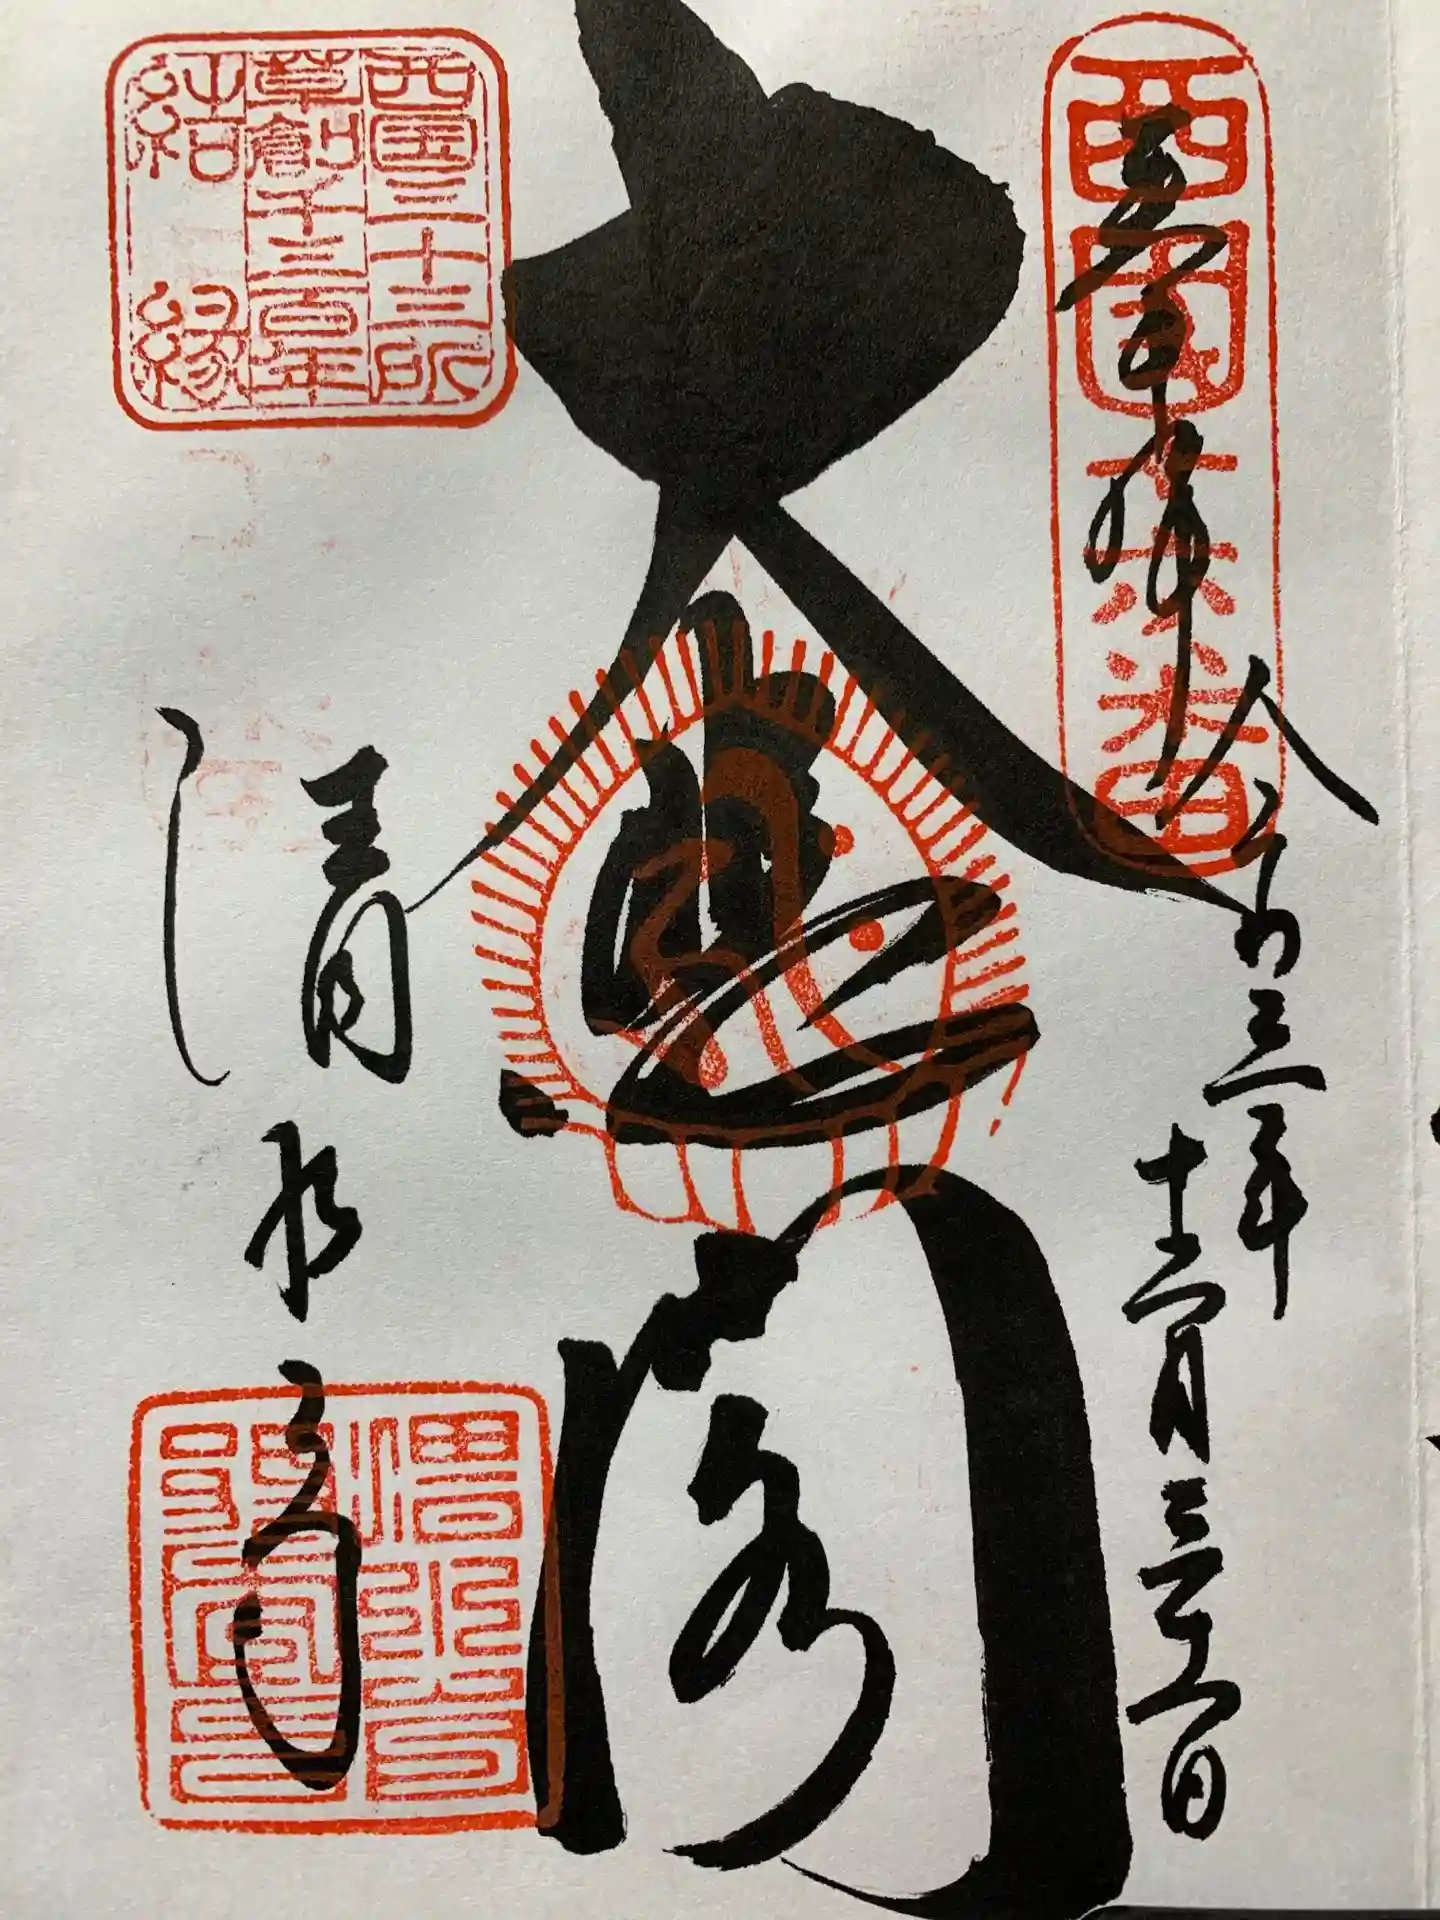 西國十六番
奉拝
令和三年
十二月三十一日
大悲閣
清水寺
西国三十三所
草創千三百年
結縁